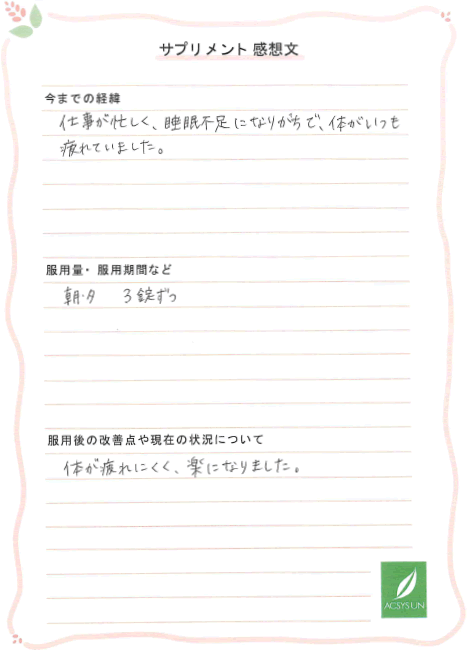 サプリメント感想文
今までの経緯
仕事が忙しく、睡眠不足になりがちで、体がいつも
疲れていました。
服用量・服用期間など
朝・夕　3錠ずつ
服用後の改善点や現在の状況について
体が疲れにくく、楽になりました。
ACSYSUN